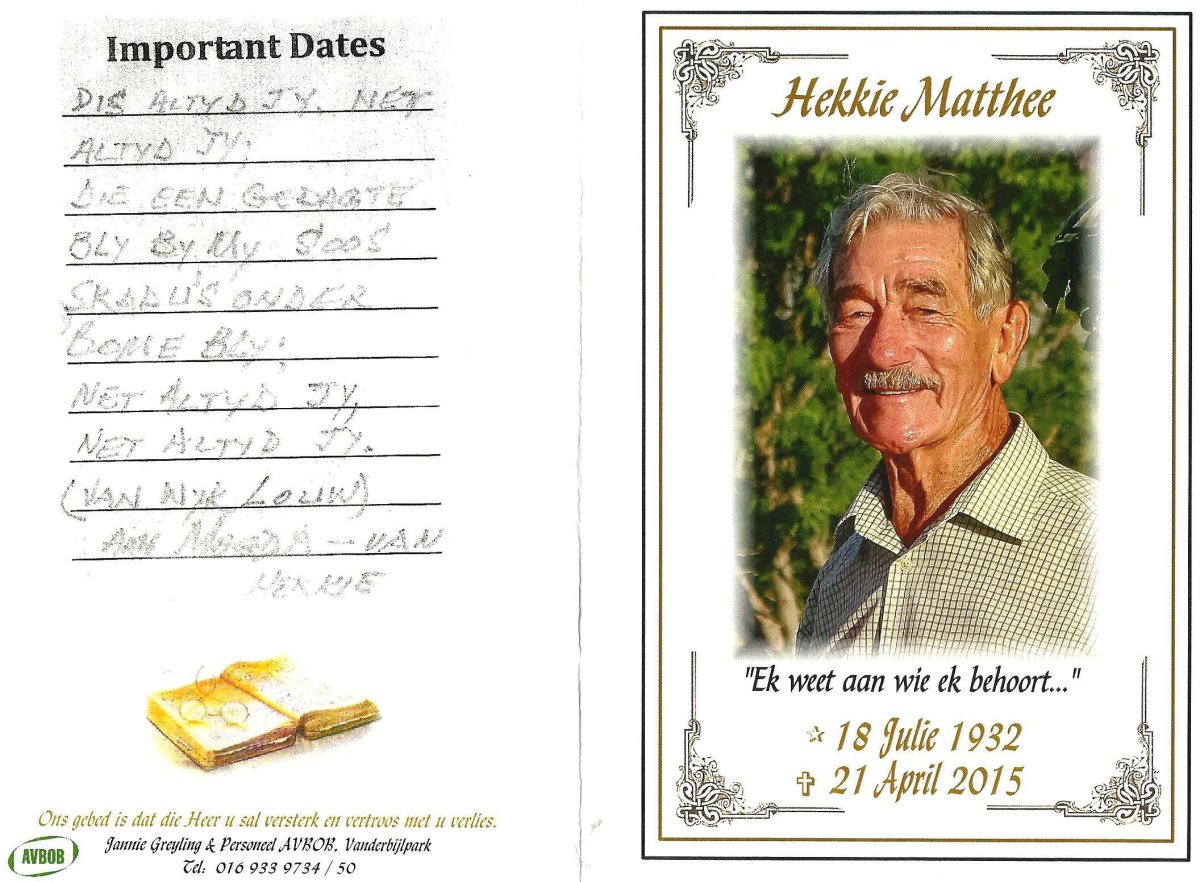 Important Dates
DIS ALTYD JY. NET
ALTYD JY;
DIE EEN GEDAGTE
BLY BY MY SOOS
SKADU'S ONDER
BOME BLY;
NET ALTYD JY,
NET ALTYD JY.
(VAN WYK LOUW)
AAN MAGDA — VAN
HEKKIE
Ons gebed is dat die Heer u sal versterk en vertroos met u verlies.
AVBOB
Jannie Greyling & Personeel AVBOB, Vanderbijlpark
Tel: 016 933 9734 / 50
Hekkie Matthee
"Ek weet aan wie ek behoort..."
18 Julie 1932
21 April 2015